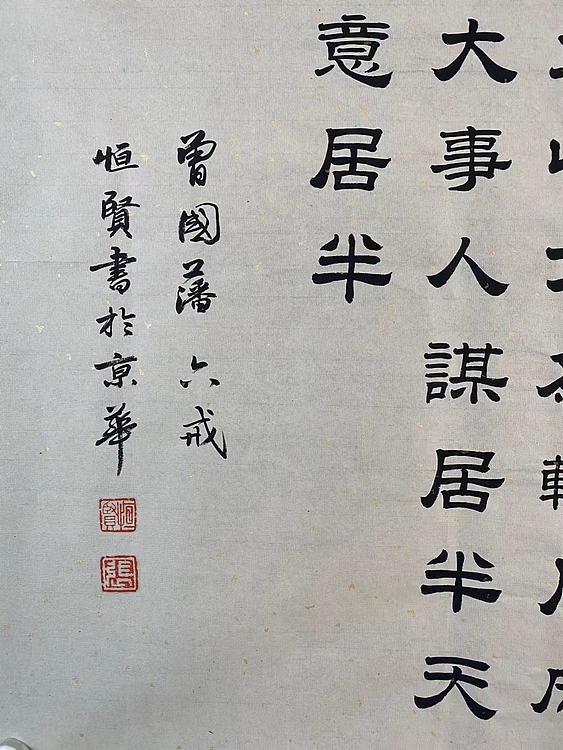 大事人謀居半天
意居半
曾國藩六戒
恒賢書於京華
恒賢
張